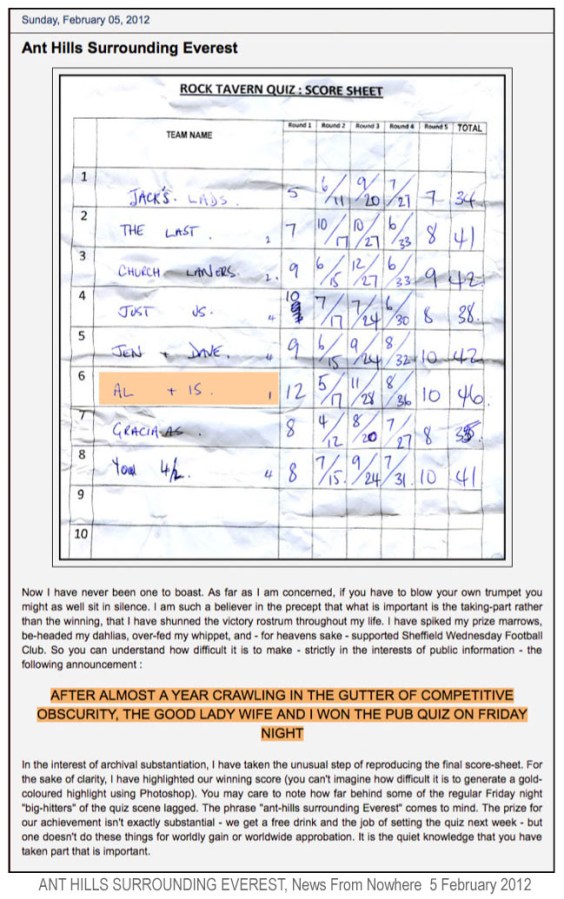 Sunday, February 05, 2012
Ant Hills Surrounding Everest
ROCK TAVERN QUIZ : SCORE SHEET
TEAM NAME Round 1 Round 2 Round 3 Round 4 Round 5 TOTAL
1 JACK'S. LADS. 5 6/11 9/20 7/27 7 34
2 THE LAST. 7 10/17 10/27 6/33 8 41
3 CHURCH LANERS. 9 6/15 12/27 6/33 9 42
4 JUST US. 10 7/17 7/24 6/30 8 38.
5 JEN + DAVE. 9 6/15 9/24 8/32 10 42
6 AL + IS. 12 5/17 11/28 8/36 10 46.
7 GRACIAAS. 8 4/12 8/20 7/27 8
8 You 4/2. 8 7/15. 9/24 7/31. 10 41
9
10
Now I have never been one to boast. As far as I am concerned, if you have to blow your own trumpet you
might as well sit in silence. I am such a believer in the precept that what is important is the taking-part rather
than the winning, that I have shunned the victory rostrum throughout my life. I have spiked my prize marrows,
be-headed my dahlias, over-fed my whippet, and - for heavens sake - supported Sheffield Wednesday Football
Club. So you can understand how difficult it is to make - strictly in the interests of public information - the
following announcement :
AFTER ALMOST A YEAR CRAWLING IN THE GUTTER OF COMPETITIVE
OBSCURITY, THE GOOD LADY WIFE AND I WON THE PUB QUIZ ON FRIDAY
NIGHT
In the interest of archival substantiation, I have taken the unusual step of reproducing the final score-sheet. For
the sake of clarity, I have highlighted our winning score (you can't imagine how difficult it is to generate a gold-
coloured highlight using Photoshop). You may care to note how far behind some of the regular Friday night
"big-hitters" of the quiz scene lagged. The phrase "ant-hills surrounding Everest" comes to mind. The prize for
our achievement isn't exactly substantial - we get a free drink and the job of setting the quiz next week - but
one doesn't do these things for worldly gain or worldwide approbation. It is the quiet knowledge that you have
taken part that is important.
ANT HILLS SURROUNDING EVEREST, News From Nowhere 5 February 2012